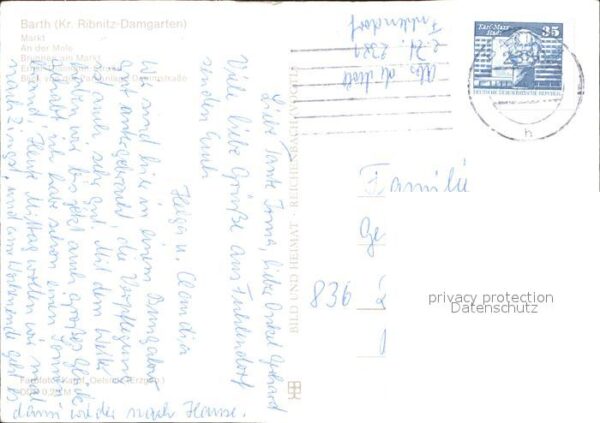 Barth (Kr. Ribnitz-Damgarten)
Markt
An der Mole
Brunnen am Markt
Liebe Tante Irma, liebe Onkel Gerhard
Viele liebe Grüße aus Fuhlendorf
senden Euch
Helga u. Claudia
Wir sind hier in einem Bungalow
gut untergebracht, die Verpflegung
ist auch sehr gut. Mit dem Wetter
haben wir bis jetzt auch großes Glück
gehabt, ich habe schon einen Sonnen-
brand. Heute Mittag wollen wir mal
nach Zingst, und am Wochenende geht es
dann wieder nach Hause.
Fuhlendorf
BILD UND HEIMAT · REICHENBACH
Karl-Marx-
Stadt
35
DEUTSCHE DEMOKRATISCHE REPUBLIK
Familie
Ge
836
privacy protection
Datenschutz